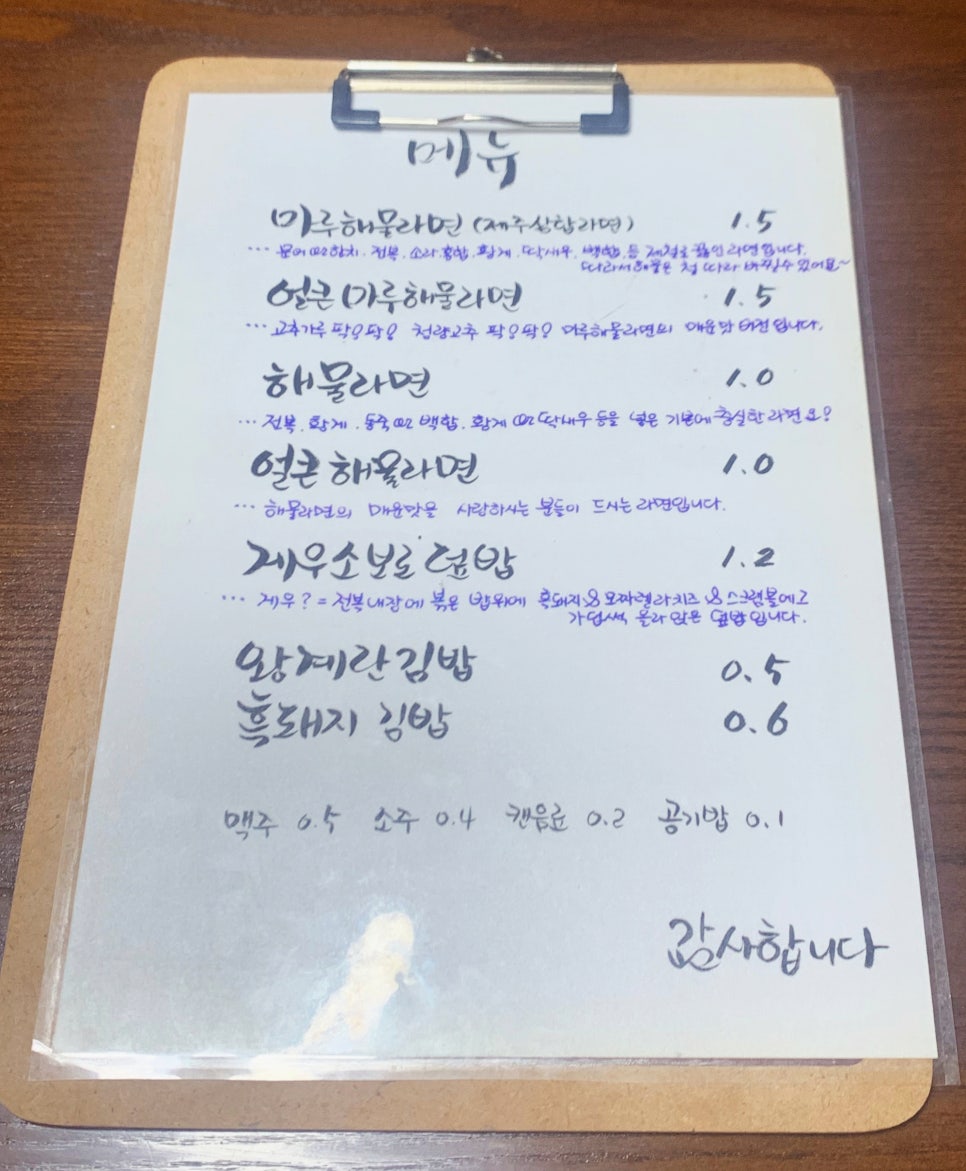 메뉴
마루해물라면 (제주삼합라면) 1.5
··· 문어 or 한치, 전복, 소라, 홍합, 황게, 딱새우, 백합, 등 제철로 끓인 라면입니다.
따라서 해물은 철 따라 바뀔 수 있어요~
얼큰 마루해물라면 1.5
··· 고추가루 팍!팍! 청량고추 팍!팍! 마루해물라면의 매운맛 버전입니다.
해물라면 1.0
··· 전복, 황게, 동죽 or 백합, 황게 or 딱새우 등을 넣은 기본에 충실한 라면요?
얼큰 해물라면 1.0
··· 해물라면의 매운맛을 사랑하시는 분들이 드시는 라면입니다.
게우소보로 덮밥 1.2
··· 게우? = 전복내장에 볶은 밥위에 흑돼지 & 모짜렐라치즈 & 스크램블에그
가 덥썩 올라 앉은 덮밥입니다.
왕계란김밥 0.5
흑돼지 김밥 0.6
맥주 0.5 소주 0.4 캔음료 0.2 공기밥 0.1
감사합니다